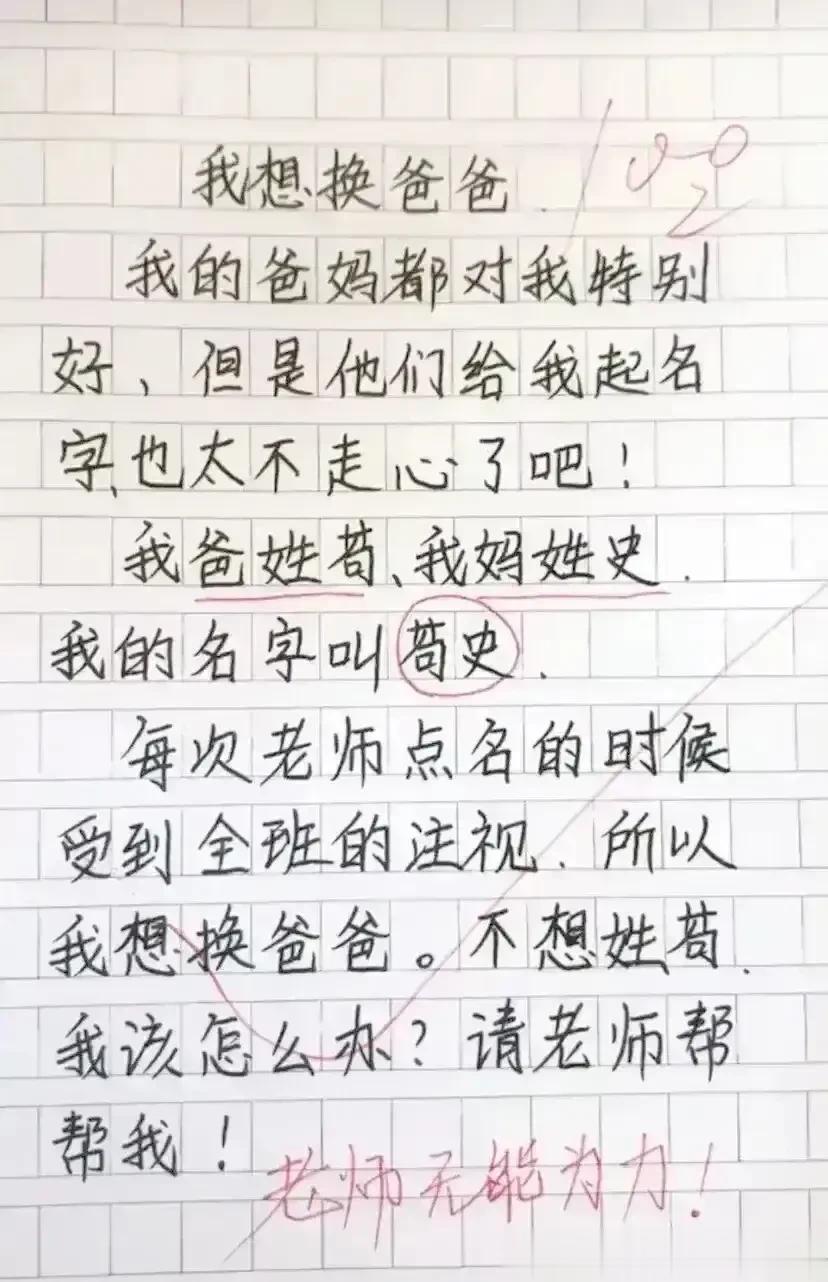 我想换爸爸.
我的爸妈都对我特别
好、但是他们给我起名
字、也太不走心了吧!
我爸姓苟、我妈姓史.
我的名字叫苟史.
每次老师点名的时候
受到全班的注视.所以
我想换爸爸。不想姓苟.
我该怎么办?请老师帮
帮我!
老师无能为力!